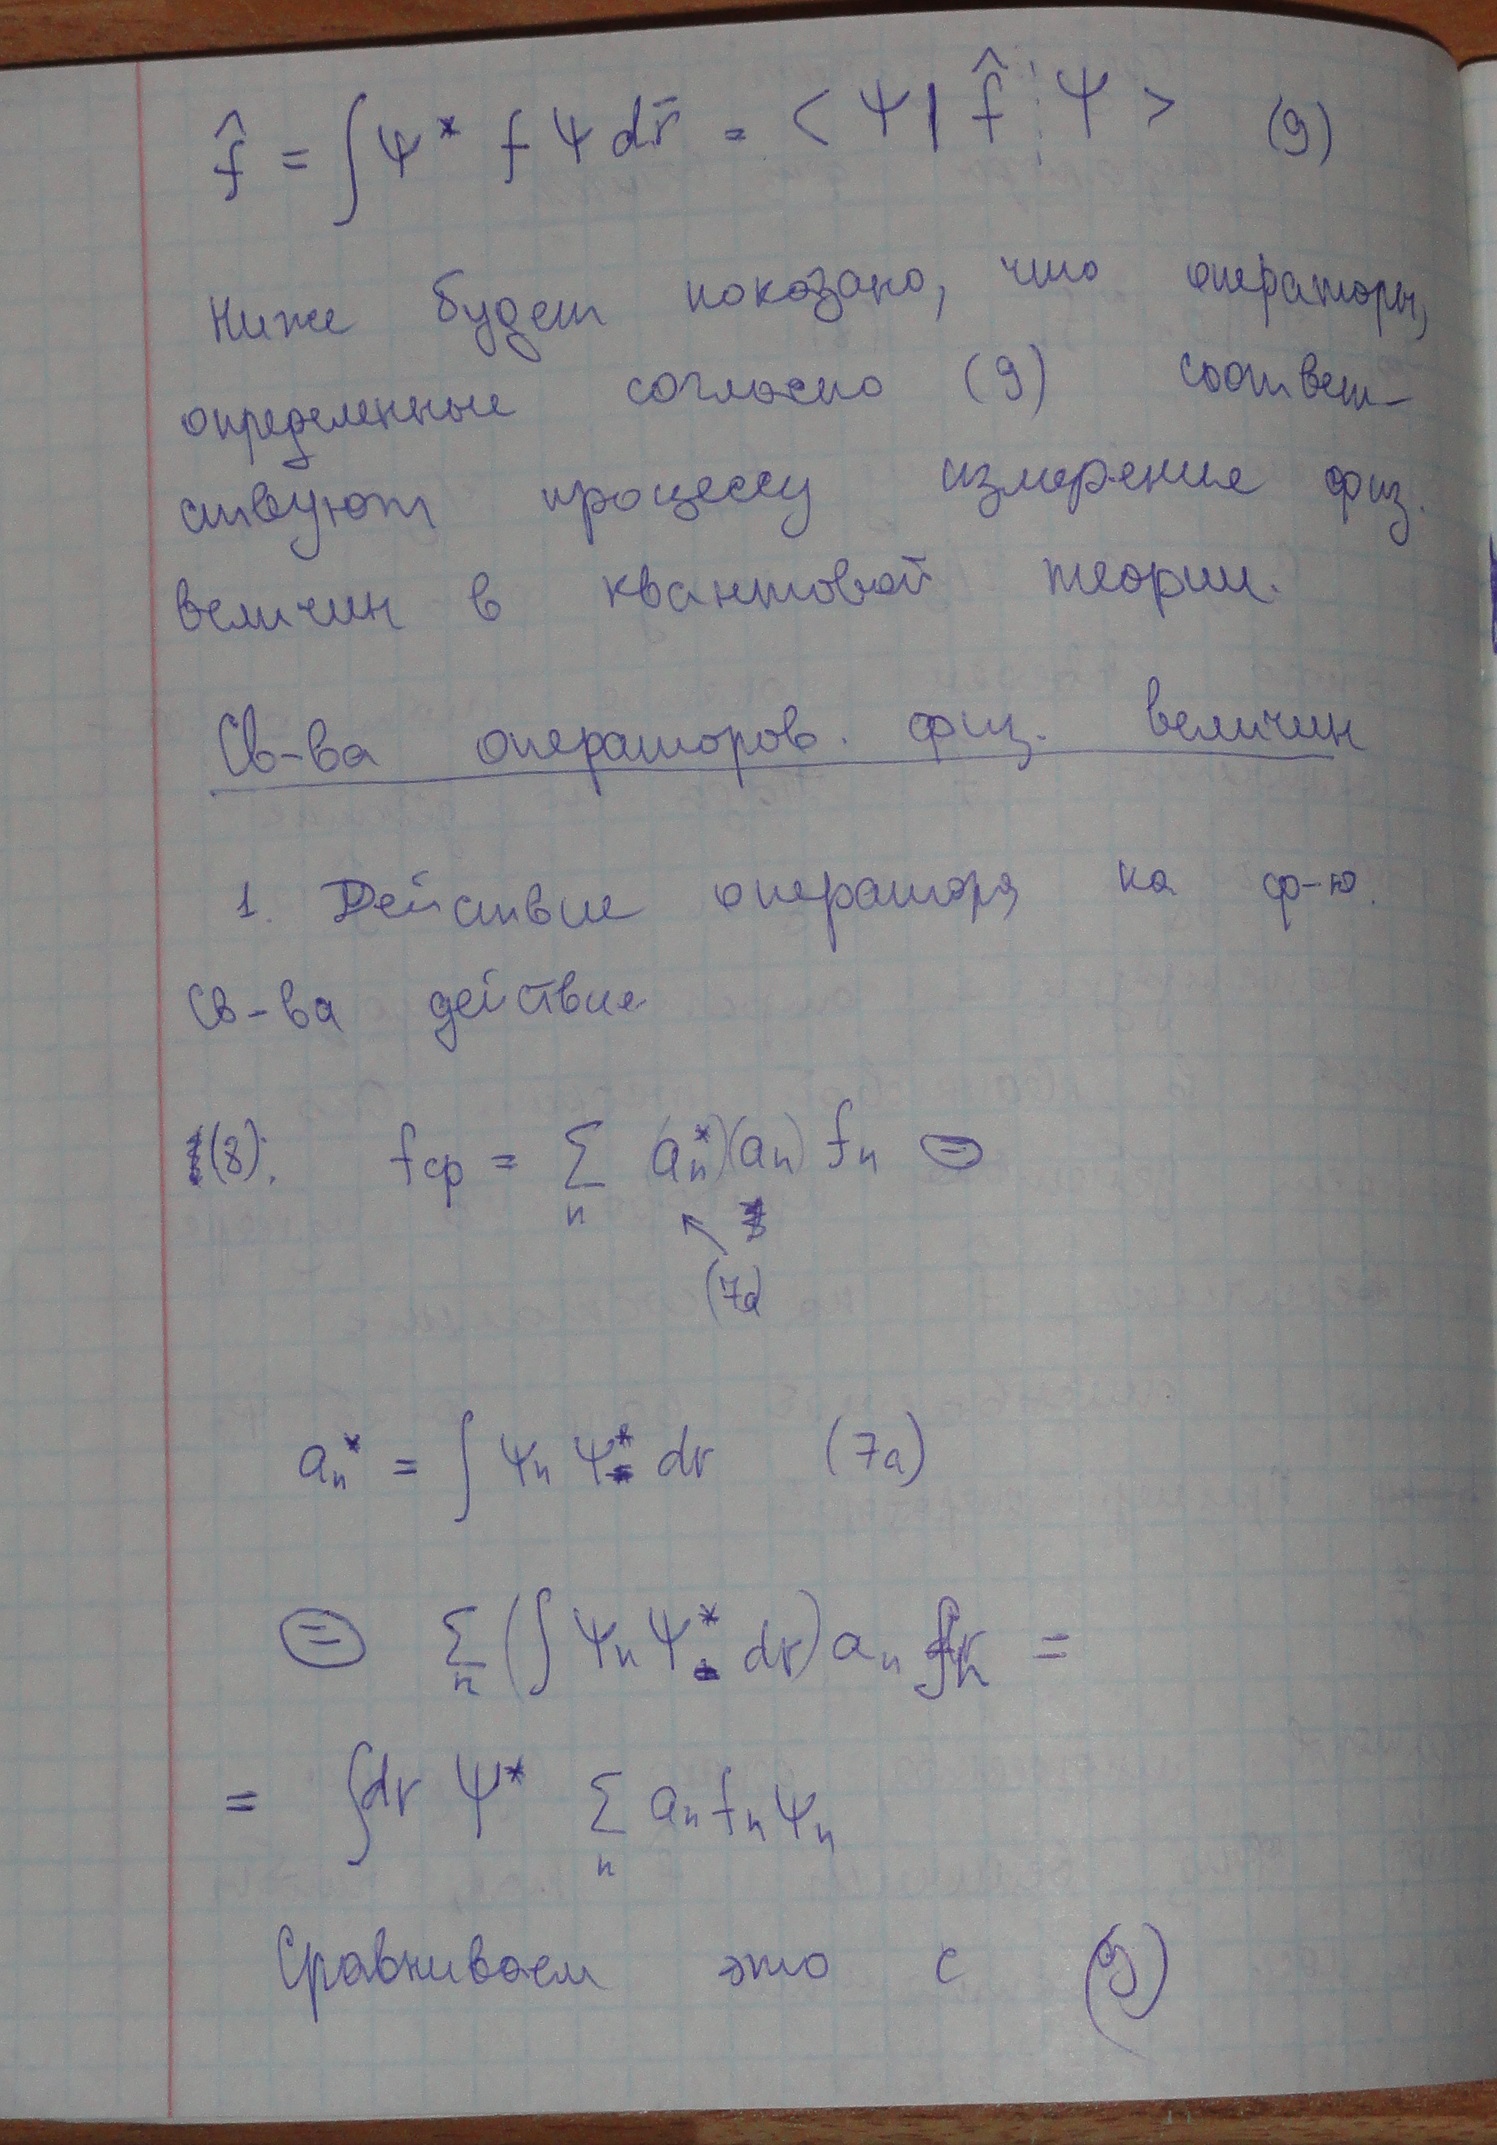 f̂ = ∫ Ψ* f Ψ dr̄ = < Ψ | f̂ | Ψ > (9)
Ниже будет показано, что операторы,
определенные согласно (9) соответ-
ствуют процессу измерения физ.
величин в квантовой теории.
Св-ва операторов. физ. величин
1. Действие оператора на ф-ю.
Св-ва действия
(8): fср = Σn (an*)(an) fn ⊜
(7a)
an* = ∫ Ψn Ψ* dr (7a)
⊜ Σn (∫ Ψn Ψ* dr) an fn =
= ∫dr Ψ* Σn an fn Ψn
Сравниваем это с (9)